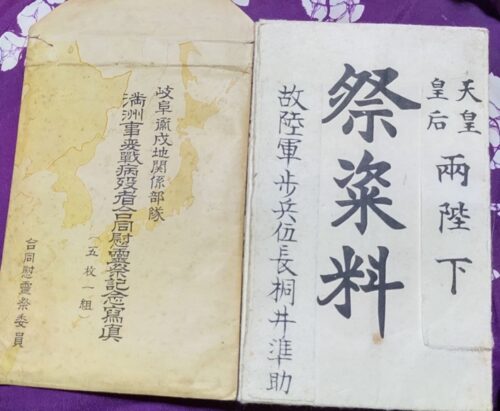 天皇
皇后
兩陛下
祭粢料
故陸軍歩兵伍長桐井準助
岐阜衞戍地関係部隊
満洲事変戰病歿者合同慰靈祭記念寫真
（五枚一組）
合同慰靈祭委員